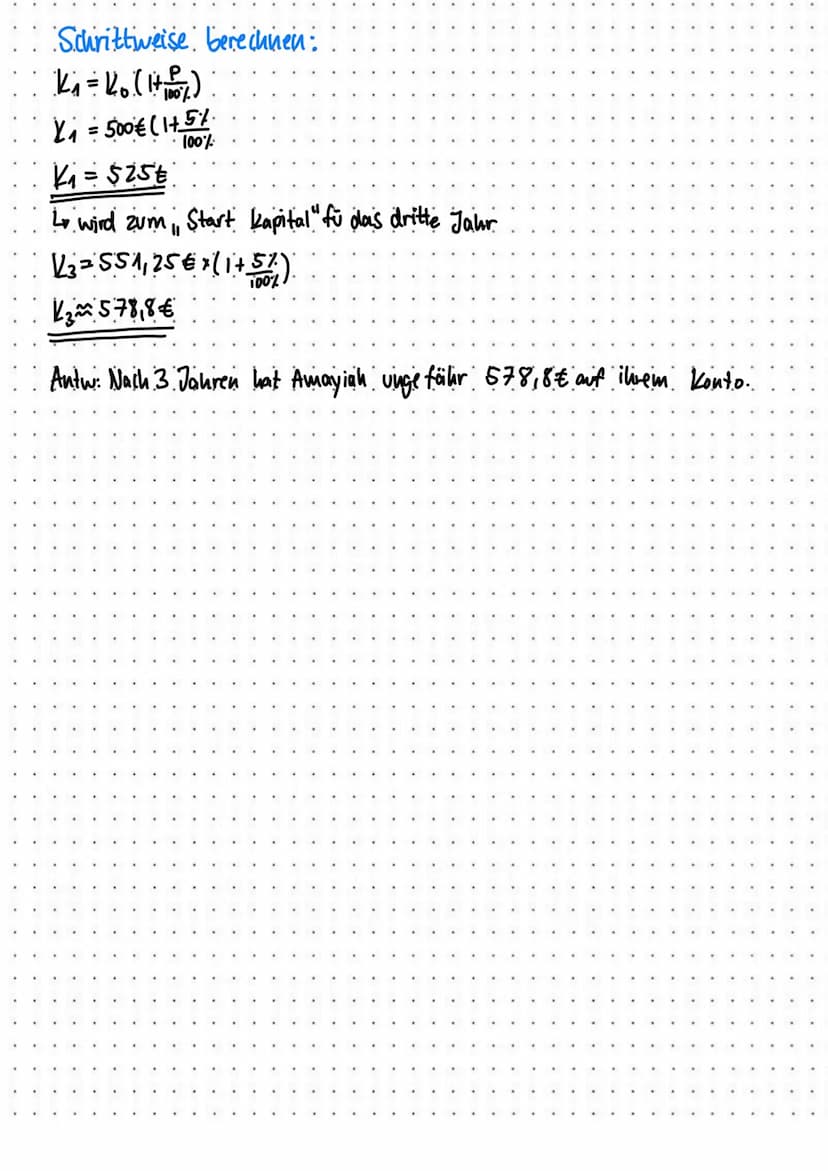 Schrittweise berechnen:
K₁ = K₀ (1+ P/100%)
K₁ = 500€ (1+ 5%/100%
K₁ = 525€
↳ wird zum „Start Kapital" fü das dritte Jahr
K₃ = 551,25€ * (1+ 5%/100%)
K₃ ≈ 578,8€
Antw: Nach 3 Jahren hat Amayiah ungefähr 578,8€ auf ihrem Konto.